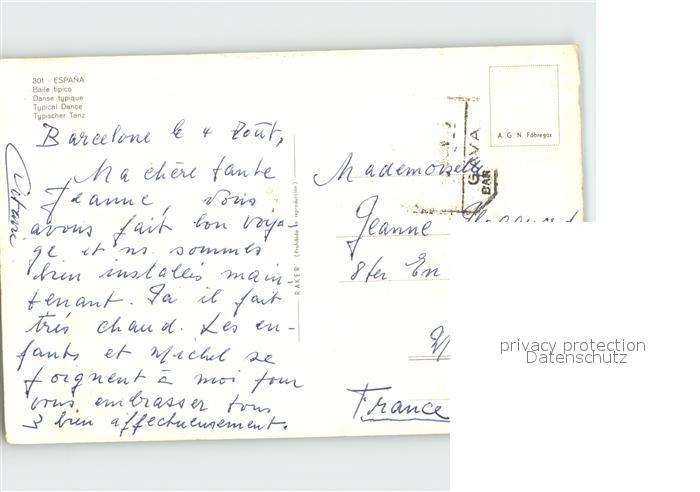 301 - ESPAÑA
Baile típico
Danse typique
Typical Dance
Typischer Tanz
Barcelone le 4 Août,
Ma chère tante
Jeanne, nous
avons fait bon voya-
ge et ns. sommes
bien installés main-
tenant. Ici il fait
très chaud. Les en-
fants et Michel se
joignent à moi pour
vous embrasser tous
3 bien affectueusement.
RAKER (Prohibida la reproducción)
A. G. N. Fábregas
GOVA
BAR
Mademoiselle
Jeanne
8ter En
France
privacy protection
Datenschutz